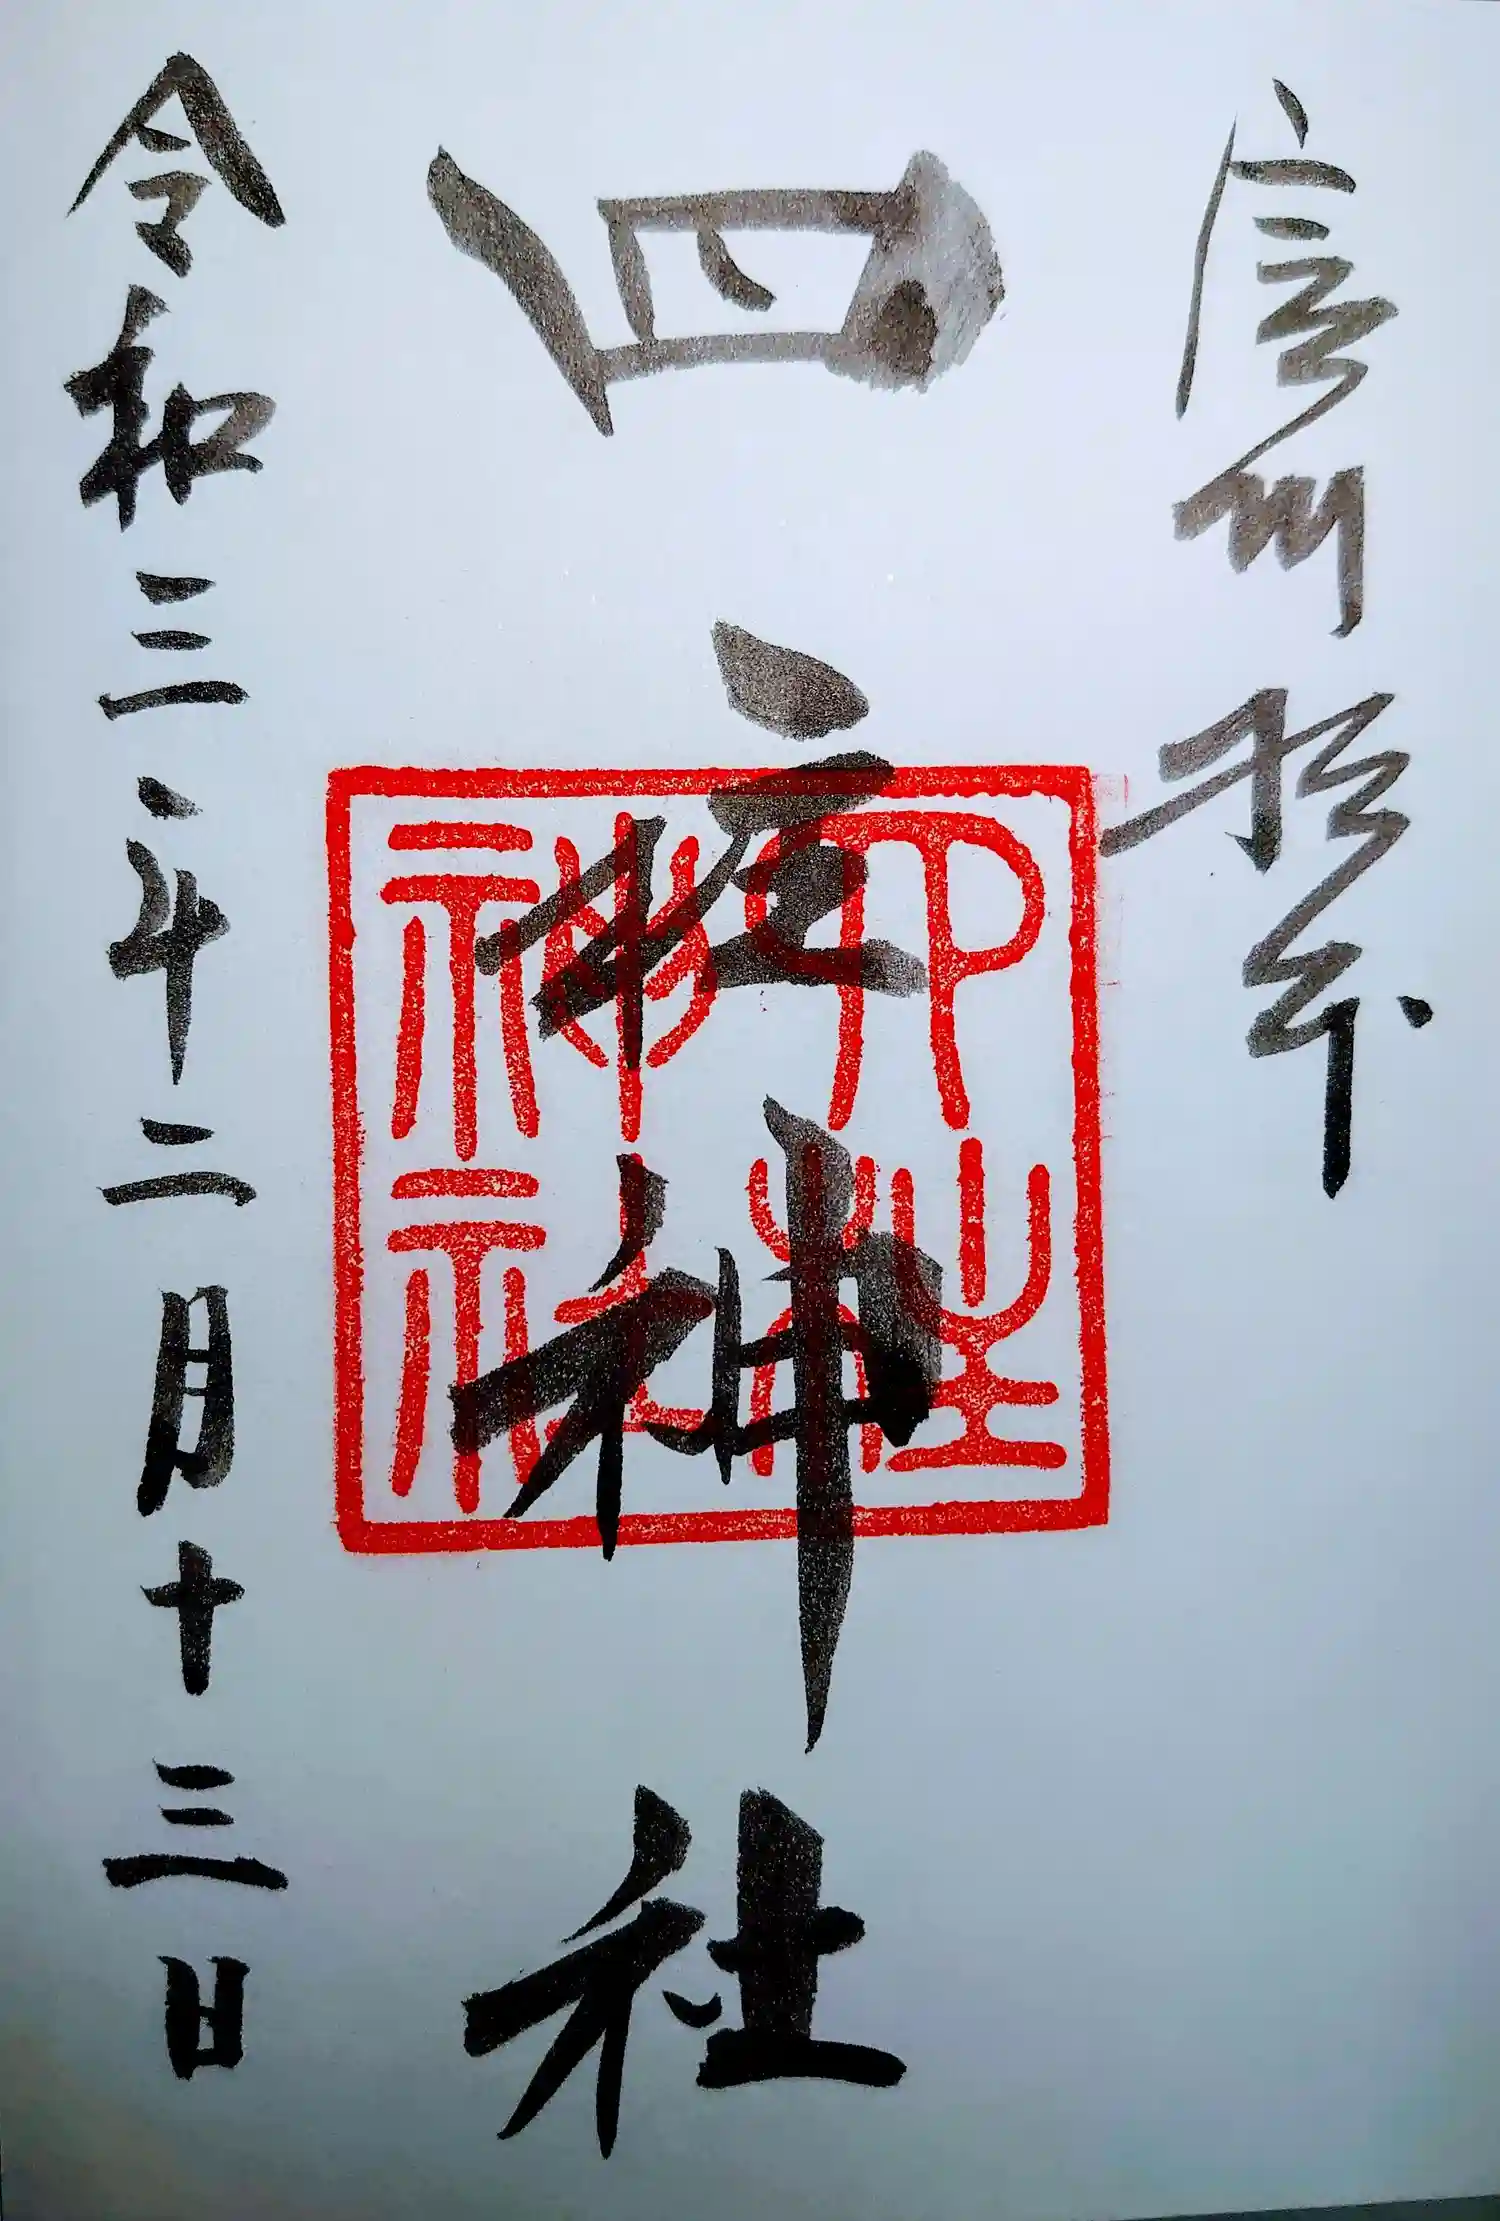 信州松本
四柱神社
四柱
神社
令和三年二月十三日